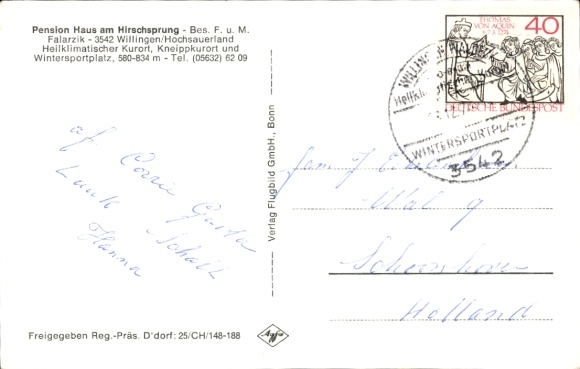 Pension Haus am Hirschsprung - Bes. F. u. M.
Falarzik - 3542 Willingen/Hochsauerland
Heilklimatischer Kurort, Kneippkurort und
Wintersportplatz, 580-834 m - Tel. (05632) 62 09
THOMAS
VON AQUIN
40
DEUTSCHE BUNDESPOST
WINTERSPORTPLATZ
3542
af Corrie Gerda
Luuk
Hanna
Fam J
Wal 9
Schoonhoven
Holland
Verlag Flugbild GmbH., Bonn
Freigegeben Reg.-Präs. D'dorf: 25/CH/148-188
Agfa